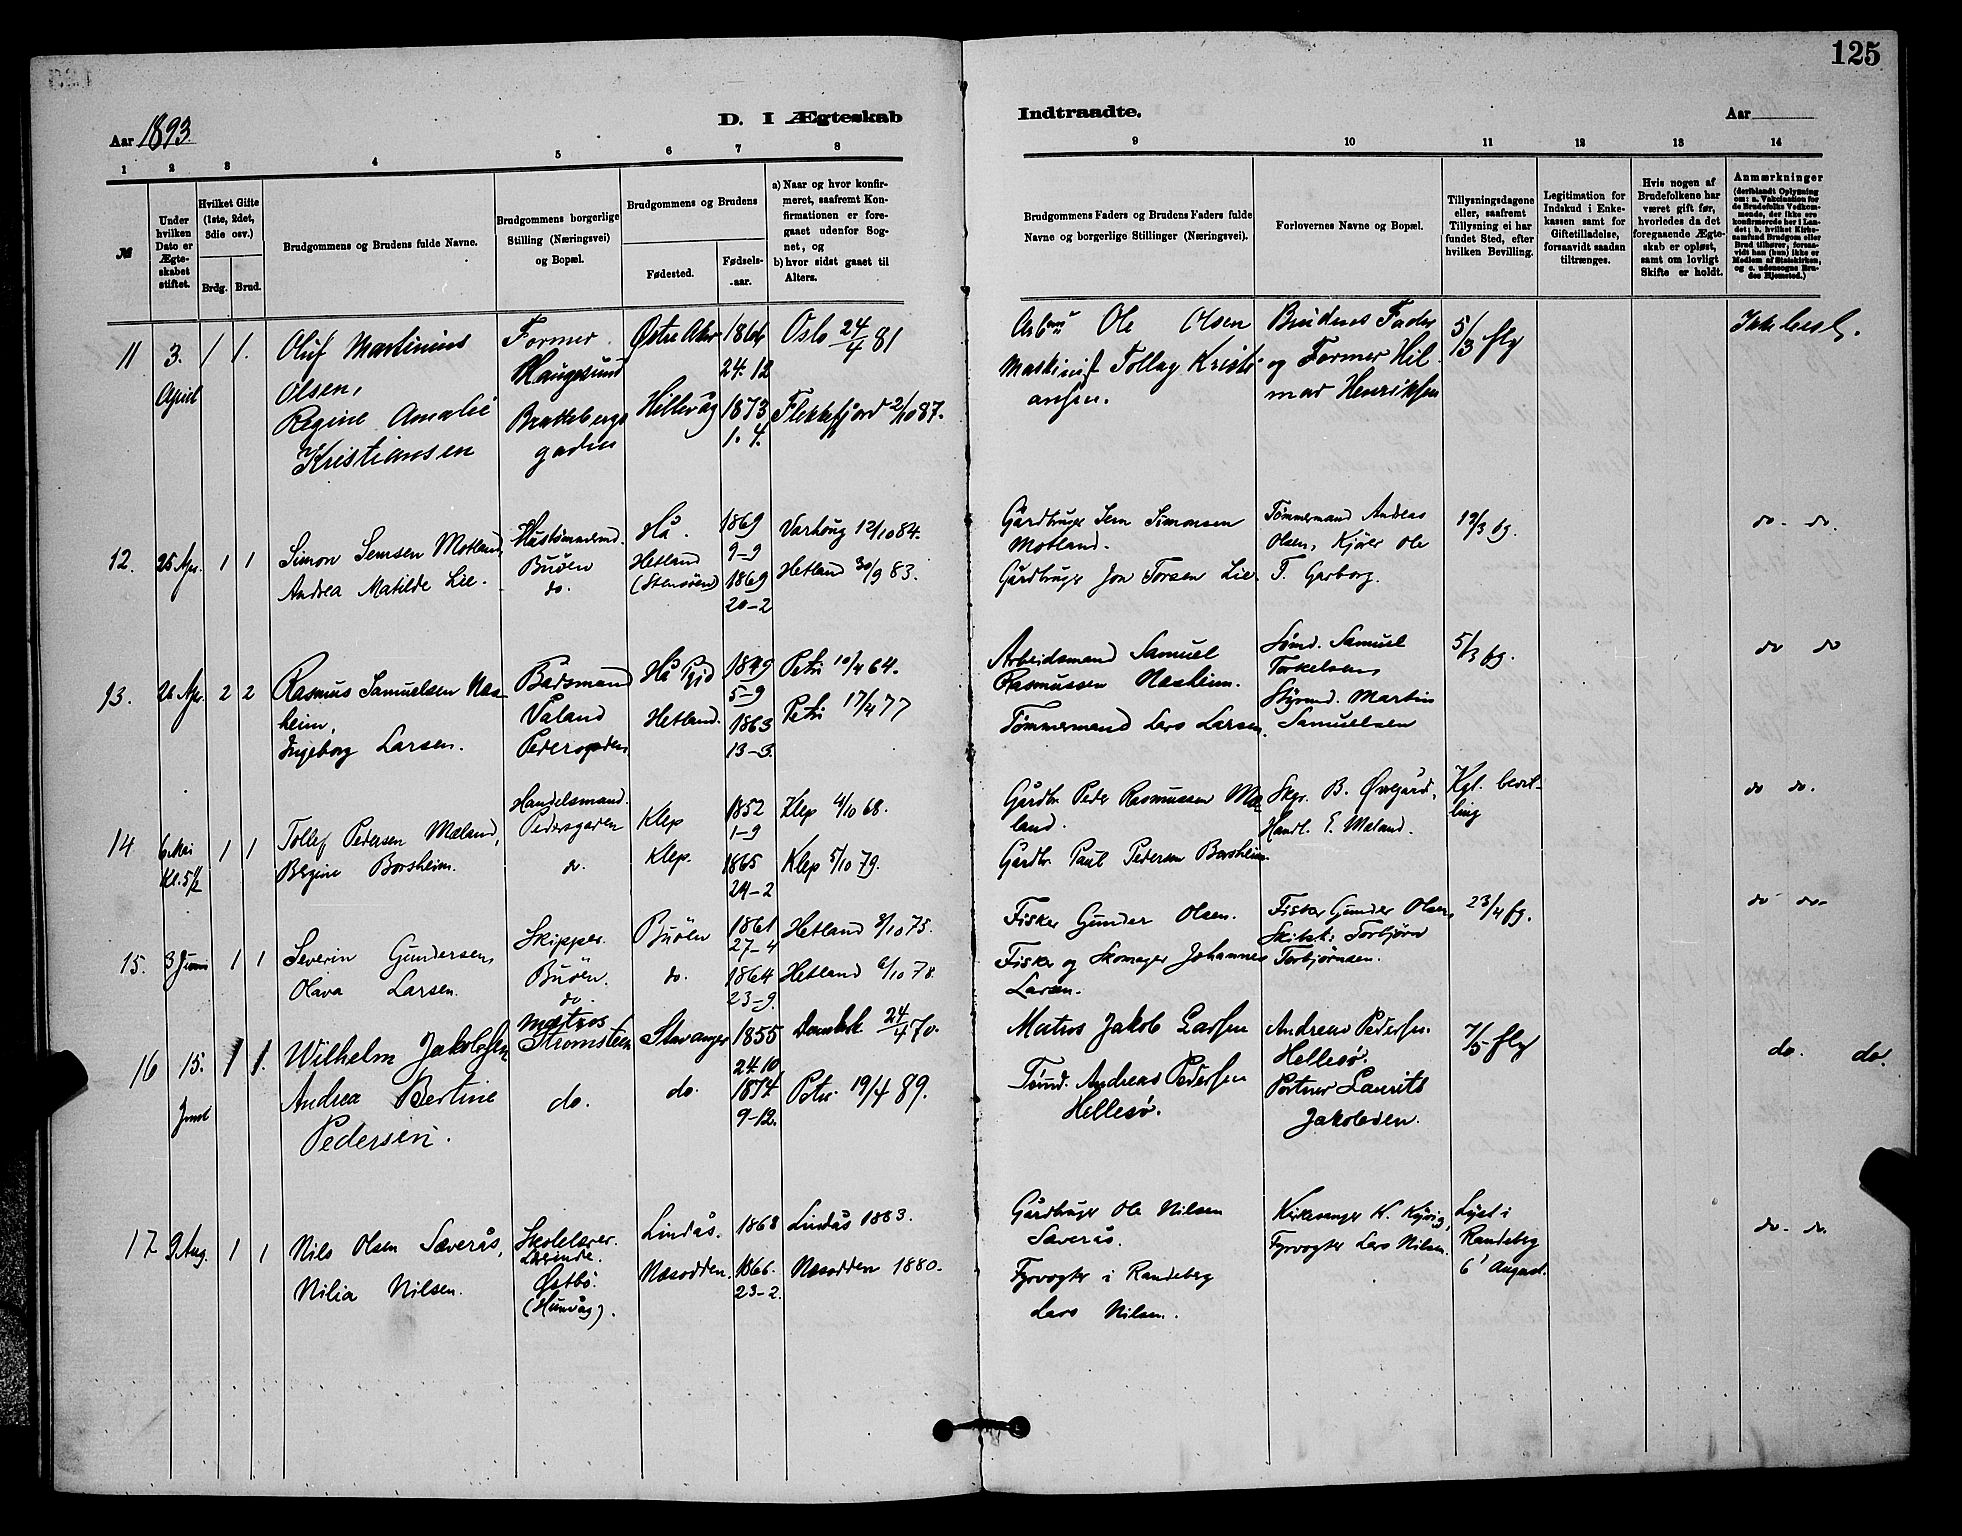 125
D. I Ægteskab Indtraadte.
Aar 1893. Aar
1 2 3 4 5 6 7 8 9 10 11 12 13 14
№
Under hvilken Dato er Ægteskabet stiftet.
Hvilket Gifte (1ste, 2det, 3die osv.)
Brdg. Brud.
Brudgommens og Brudens fulde Navne.
Brudgommens borgerlige Stilling (Næringsvei) og Bopæl.
Brudgommens og Brudens
Fødested.
Fødsels-aar.
a) Naar og hvor konfirmeret, saafremt Konfirmationen er foregaaet udenfor Sognet, og
b) hvor sidst gaaet til Alters.
Brudgommens Faders og Brudens Faders fulde Navne og borgerlige Stillinger (Næringsvei).
Forlovernes Navne og Bopæl.
Tillysningsdagene eller, saafremt Tillysning ei har fundet Sted, efter hvilken Bevilling.
Legitimation for Indskud i Enkekassen samt for Giftetilladelse, forsaavidt saadan tiltrænges.
Hvis nogen af Brudefolkene har været gift før, hvorledes da det foregaaende Ægteskab er opløst, samt om lovligt Skifte er holdt.
Anmærkninger
(deriblandt Oplysning om: a. Vakcination for de Brudefolks Vedkommende, der ikke ere konfirmerede her i Landet; b. hvilket Kirkesamfund Brudgom eller Brud tilhører, forsaavidt han (hun) ikke er Medlem af Statskirken, og c. udensogns Brudes Hjemsted.)
11 3. April 1 1.
Oluf Martinius
Olsen,
Regine Amalie
Kristiansen
Former
Haugesund
gaden
Østre Aker
Hillevåg
24.12
1873
1.4.
Oslo 24/4 81
Flekkefjord 2/10 87.
Ole Olsen
Maskinist Tollag Kristi-
ansen.
Brudens Fader
og Former Hil-
mar Henriksen
5/3 flg
12. 25 Apr. 1 1
Simon Jemsen Motland,
Andrea Matilde Lie.
Buöen
do.
Hå.
Hetland
(Stensöen)
1869
9-9
1869
20-2
Varhoug 12/10 84.
Hetland 30/9 83.
Gårdbruger Jem Simonsen
Motland.
Gårdbruger Jon Torsen Lie.
Tømmermand Andreas
Olsen, Kjører Ole
T. Garborg.
19/3 fg.
do. do.
13. 26 Apr. 2 2
Rasmus Samuelsen Næs-
heim,
Ingeborg Larsen.
Bådsmand
Våland
Pedersgaden
Hå
Hetland.
1849
5-9
1863
13-3.
Petri 10/4 64.
Petri 17/4 77
Arbeidsmand Samuel
Rasmussen Næsheim.
Tømmermand Lars Larsen.
Samuel
Torkelsen,
Styrmd. Martin
Samuelsen
5/3 fg.
do do
14 6 Mai Kl. 5 1/2 1 1
Tollef Pedersen Mæland,
Bergine Borsheim.
Handelsmand.
Pedersgaden
do.
Klep
Klep.
1852
1-9
1865
24-2
Klep 4/10 68.
Klep 5/10 79.
Gårdbr. Peder Rasmussen Mæ-
land.
Gårdbr. Paul Pedersen Borsheim.
Handl. E. Mæland.
Kgl. bevil-
ling
do do.
15. 3 Juni 1 1
Severin Gundersen,
Olava Larsen.
Skipper.
Buöen.
do.
Buöen
do.
1861
27-4
1864
23-9.
Hetland 3/10 75.
Hetland 6/10 78.
Fisker Gunder Olsen.
Fisker og Skomager Johannes
Larsen.
Fisker Gunder Olsen,
Torbjørn
Torbjørnsen.
23/4 fg.
do do.
16 15. Juni 1 1.
Wilhelm Jakobsen
Andrea Bertine
Pedersen.
Matros
Strømsteen
do.
Stavanger
do.
1855
24.10
1874
9-12.
Domkirk 24/4 70.
Petri 19/4 89.
Matros Jakob Larsen
Tømd. Andreas Pedersen
Hellesø.
Andreas Pedersen
Hellesø.
Portner Laurits
Jakobsen.
7/5 flg
do. do.
17. 9 Aug. 1 1
Nils Olsen Sæverås,
Nilia Nilsen.
Skolelærer.
Lærerinde.
Østbö.
(Hunvåg).
Lindås.
Næsodden.
1868
1866.
23-2.
Lindås 1883.
Næsodden 1880.
Gårdbruger Ole Nilsen
Sæverås.
Fyrvogter i Randeberg
Lars Nilsen.
Kirkesanger K. Kyvig,
Fyrvogter Lars Nilsen.
Lyst i
Randeberg
6' August.
do. do.